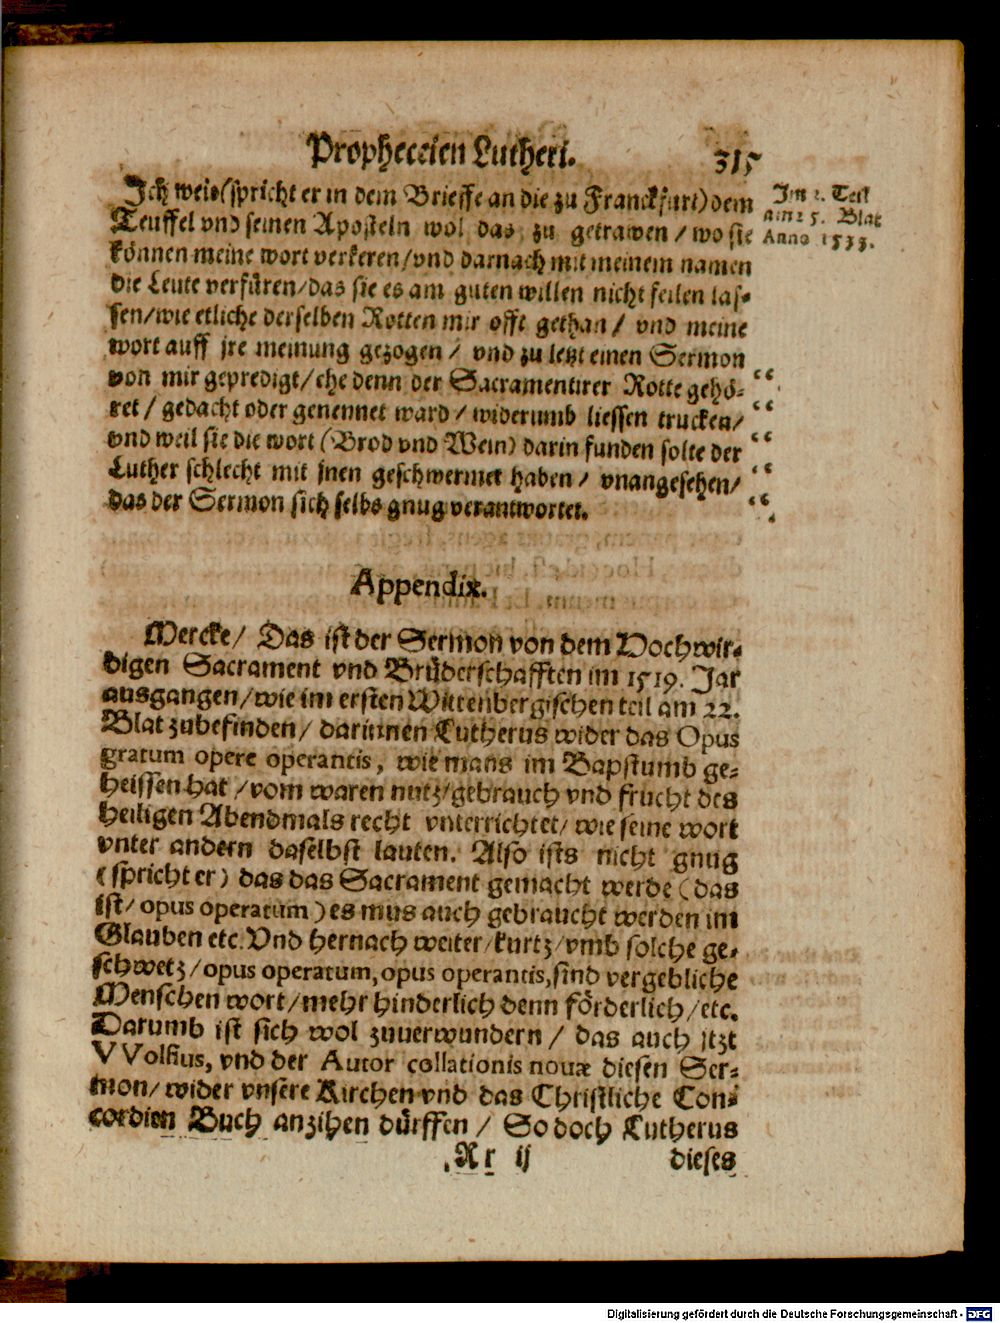 Propheceien Lutheri. 315
Ich weis (spricht er in dem Brieffe an die zu Franckfurt) dem
Teuffel vnd seinen Aposteln wol das zu getrawen / wo sie
können meine wort verkeren / vnd darnach mit meinem namen
die Leute verfüren / das sie es am guten willen nicht feilen las-
sen / wie etliche derselben Rotten mir offt gethan / vnd meine
wort auff jre meinung gezogen / vnd zu letzt einen Sermon
von mir gepredigt / ehe denn der Sacramentirer Rotte gehö-
ret / gedacht oder genennet ward / widerumb liessen trucken /
vnd weil sie die wort (Brod vnd Wein) darin funden solte der
Luther schlecht mit jnen geschwermet haben / vnangesehen /
das der Sermon sich selbs gnug verantwortet.
Im 2. Teil
am 25. Blat
Anno 1533.
Appendix.
Mercke / Das ist der Sermon von dem Hochwir-
digen Sacrament vnd Brüderschafften im 1519. Jar
ausgangen / wie im ersten Wittenbergischen teil am 22.
Blat zubefinden / darinnen Lutherus wider das Opus
gratum opere operantis, wie mans im Bapstumb ge-
heissen hat / vom waren nutz / gebrauch vnd frucht des
heiligen Abendmals recht vnterrichtet / wie seine wort
vnter andern daselbst lauten. Also ists nicht gnug
(spricht er) das das Sacrament gemacht werde (das
ist / opus operatum) es mus auch gebraucht werden im
Glauben etc. Vnd hernach weiter / kurtz / vmb solche ge-
schwetz / opus operatum, opus operantis, sind vergebliche
Menschen wort / mehr hinderlich denn förderlich / etc.
Darumb ist sich wol zuuerwundern / das auch jtzt
VVolfius, vnd der Autor collationis nouæ diesen Ser-
mon / wider vnsere Kirchen vnd das Christliche Con-
cordien Buch anzihen dürffen / So doch Lutherus
Rr ij dieses
Digitalisierung gefördert durch die Deutsche Forschungsgemeinschaft - DFG